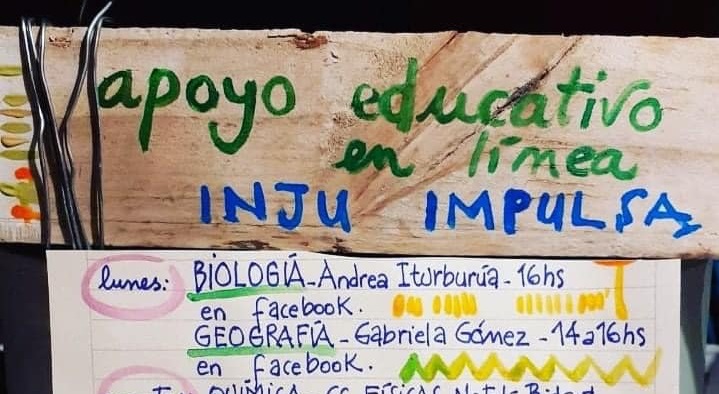 apoyo educativo
en línea
INJU IMPULSA
lunes: BIOLOGIÁ - Andrea Iturburúa - 16hs
en facebook.
GEOGRAFÍA - Gabriela Gómez - 14 a 16hs
en facebook.
QUÍMICA - CC FÍSICAS